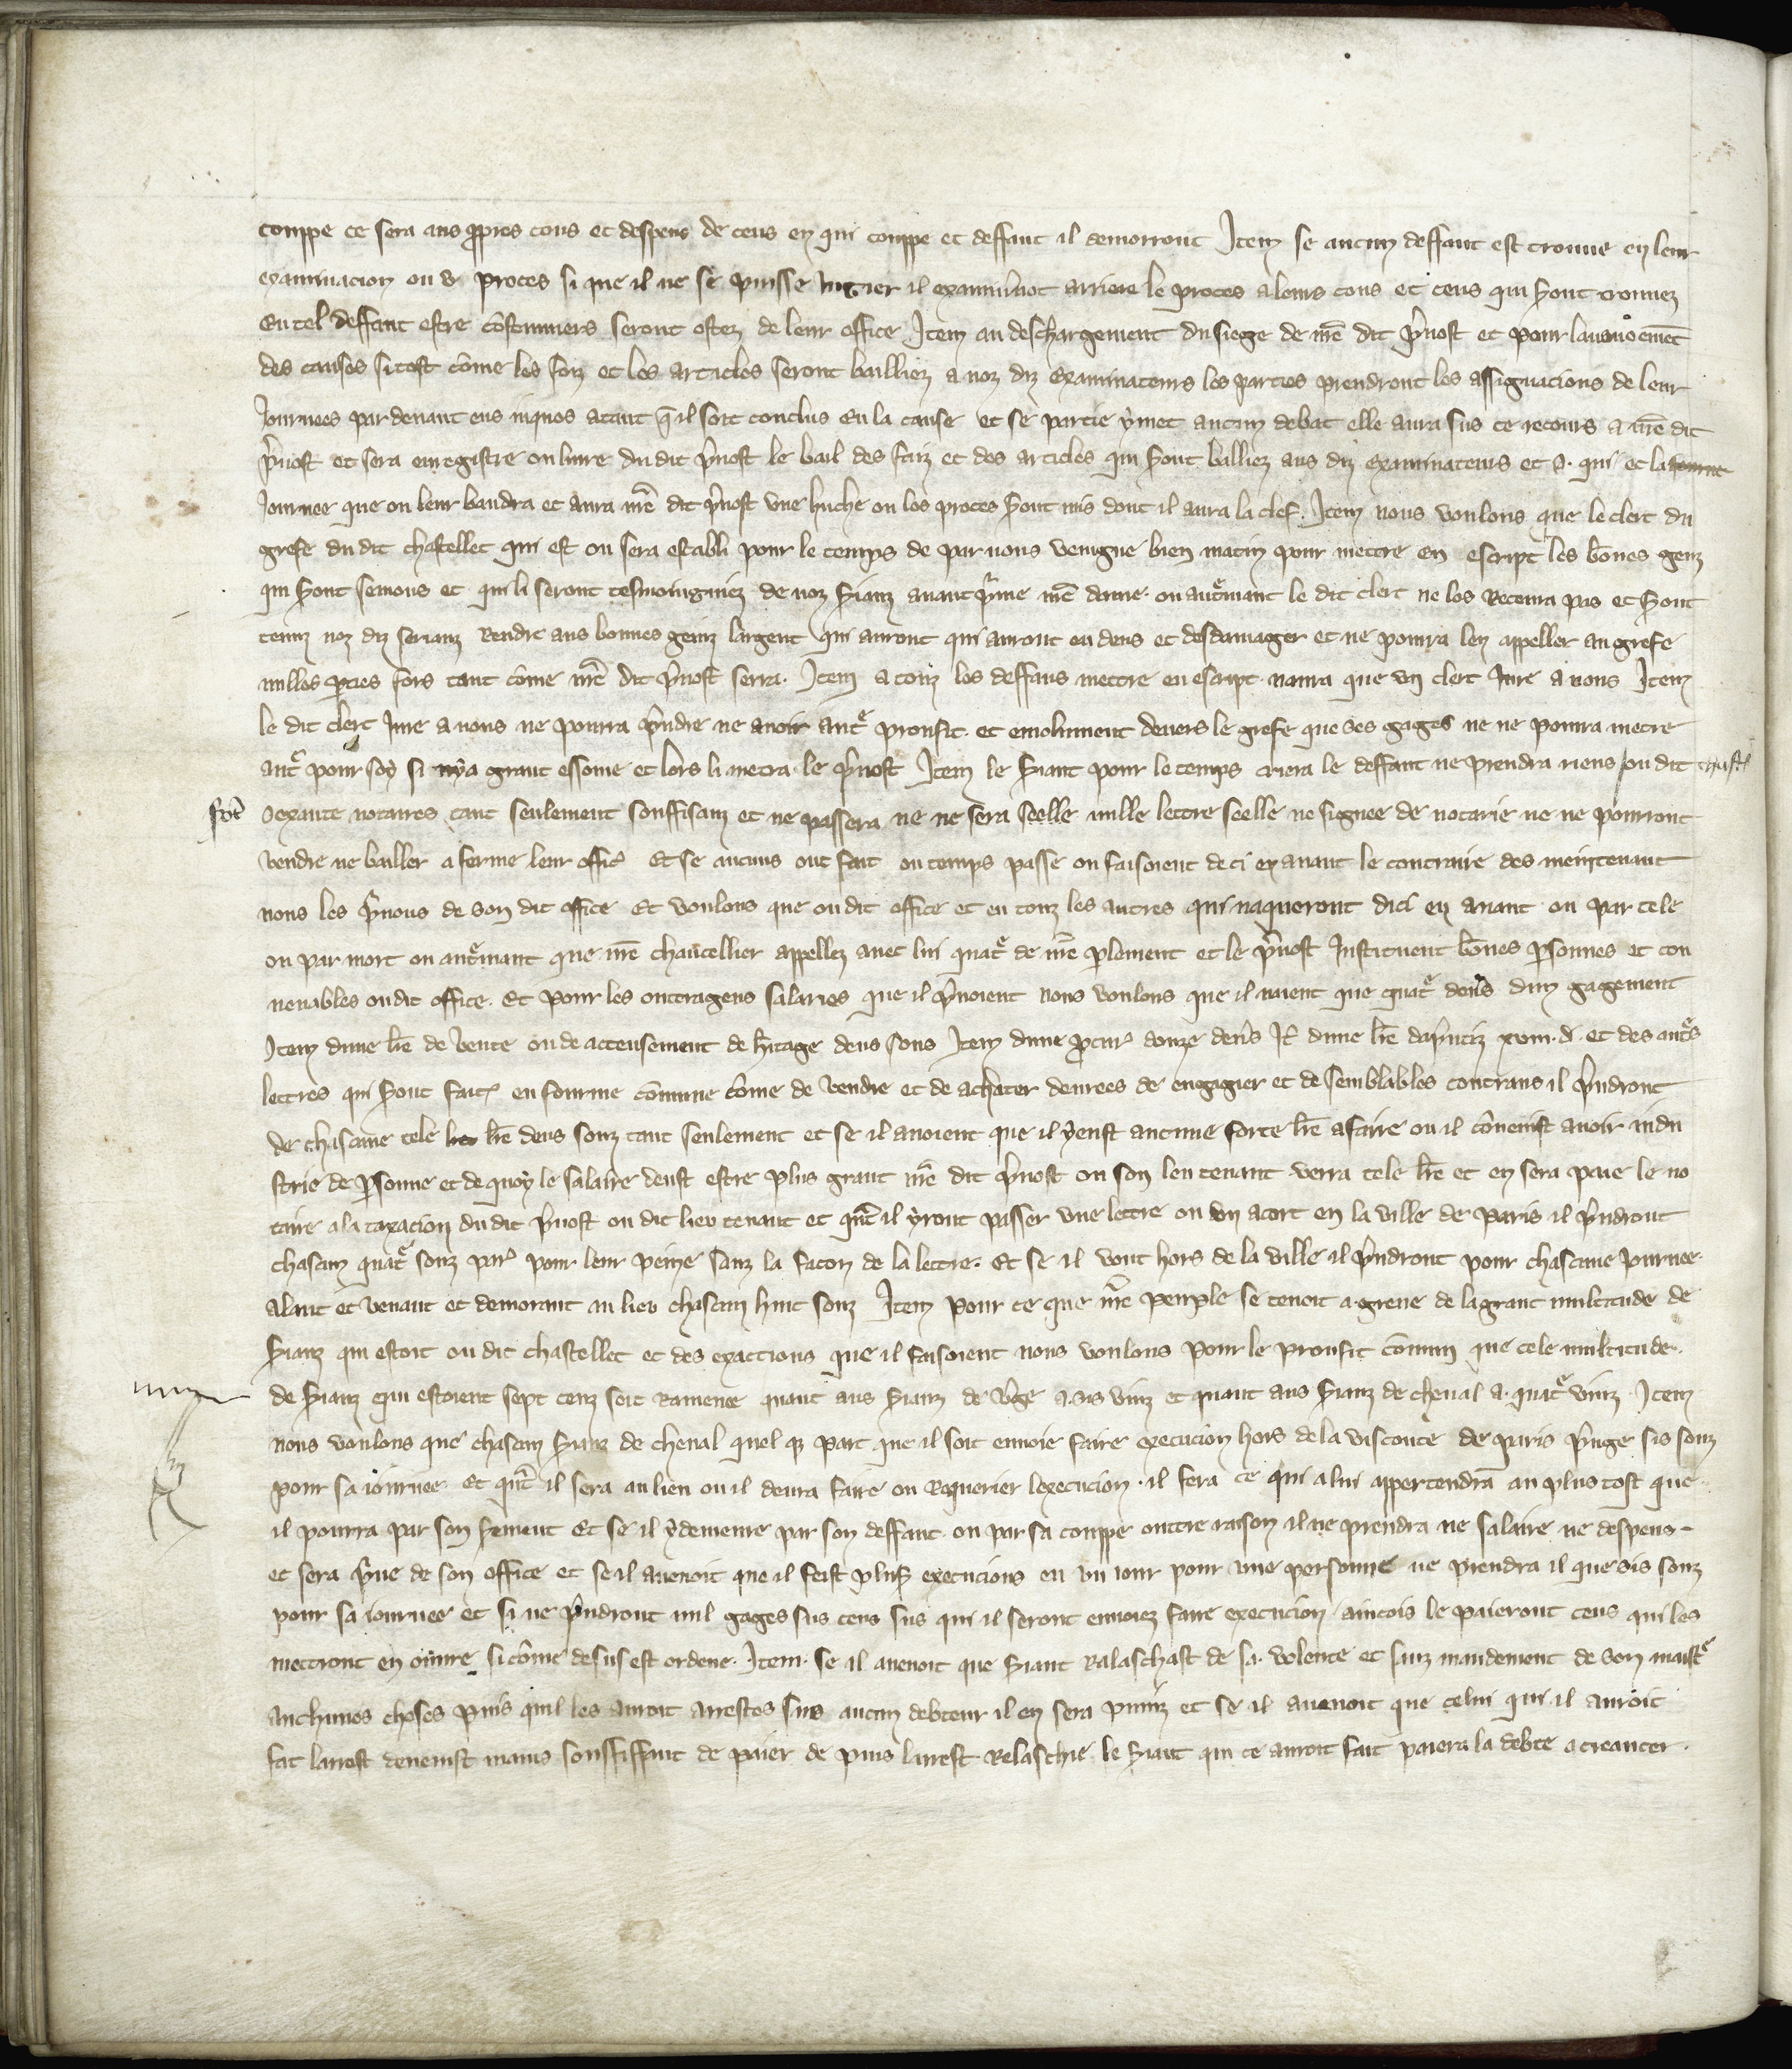 coupe ce sera aus ppres cous et despens de ceus en qui coupe et deffaut il demorront Item se aucun deffaut est trouue en leur
examinacion ou & proces si que il ne se puisse iugier il examinront arriere le proces a leurs cous et ceus qui sont trouuez
En tel deffaut estre coustumiers seront ostez de leur office Item au deschargement du siege de nre dit preuost et pour lauancemet
des causes si tost come les faiz et les articles seront bailliez a noz diz examinateurs les parties prendront les assignacions de leur
Journees par deuant eus iuqnes atant q il soit conclus en la cause et se partie y met aucun debat elle aura sus ce recours a nre dit
pruost et sera enregistre ou liure du dit pruost le bail des faiz et des articles qui sont balliez aus diz examinateurs et a qui et la
Journee que on leur baudra et aura nre dit pruost une huche ou les proces sont mis dont il aura la clef. Item nous voulons que le clerc du
grefe du dit chastellet qui est ou sera establi pour le temps de par nous veingne bien matin pour mettre en escript les bones genz
qui sont semons et qui li seront tesmoingniez de noz srianz auant prime nre dame. ou autrmant le dit clerc ne les Receura pas et sont
tenuz noz diz serianz Rendre aus bonnes genz largent qui auront qui auront eu deus et desdamager et ne pourra len appeller au grefe
nulles pties fors tant come nre dit pruost serra. Item a touz les deffaus mettre en escript naura que un clerc Jure a nous Item
le dit clerc Jure a nous ne pourra prndre ne auoir autr proufit. et emolument deuers le grefe que ses gages ne ne pourra metre
autr pour soy si ny a grant essoine et lors li metra le pruost Item le sriant pour le temps criera le deffaut ne prendra riens / ou dit chastl
Soixante notaires tant seulement souffisanz et ne passera ne ne sera seelle nulle lettre seelle ne signee de notarie ne ne pourront
vendre ne bailler a ferme leur offic Et se aucuns ont fait ou temps passe ou faisoient deci en auant le contraire des meintenant
nous les priuons de son dit office Et voulons que ou dit office et en touz les autres qui uaqueront dici en auant ou par cele
ou par mort ou autrmant que nre chancellier appellez auec lui quatr de nre plement et le pruost Instituent bones psonnes et con
uenables ou dit office. Et pour les outtrageus salaries que il prnoient nous voulons que il naient que quatr denrs dun gagement
Item dune lre de vente ou de accensement de hritage deus sous Item dune pcur douze denrs It dune lre dapruciz xviii d et des autrs
lettres qui sont faites en fourme comune come de vendre et de achater denrees de engagier et de semblables contraus il prndront
de chascune tele lre deus souz tant seulement et se il auoient que il y eust aucune forte lre a faire ou il couenist auoir indu
strie de psonne et de quoy le salaire deust estre plus grant nre dit pruost ou son leu tenant verra tele lre et en sera paie le no
taire a la taxacion du dit pruost ou dit lieu tenant et qnt il yront passer une lettre ou un acort en la ville de paris il prndront
chascun quatr souz par pour leur peine sanz la facon de la lettre. Et se il vont hors de la ville il prndront pour chascune Journee
alant et venant et demorant au lieu chascun huit souz Item pour ce que nre peuple se tenoit a greue de la grant multitude de
srianz qui estoit ou dit chastellet et des exactions que il faisoient nous voulons pour le proufit comun que cele multitude.
de srianz qui estoient sept cenz soit Ramenee quant aus srianz de vrge a sis vinz et quant aus srianz de cheual a quatr vinz Item
nous voulons que chascun srianz de cheual quel q part que il soit enuoie faire execucion hors de la visconte de paris prngne sis souz
pour sa iournee Et qnt il sera au lieu ou il deura faire ou Requerier lexecucion. il fera ce qui a lui appertendra au plus tost que
il pourra par son srement Et se il y demeure par son deffaut ou par sa coupe outtre raison il ne prendra ne salaire ne despens
et sera priue de son office et se il auenoit que il feist plus execucions en un iour pour une personne ne prendra il que sis souz
pour sa iournee et si ne prndront nul gages sus ceus sus qui il seront enuoiez faire execucion aincois le paieront ceus qui les
mettront en oeuure si come desus est ordene. Item. se il auenoit que sriant Ralaschast de sa volente et sanz mandement de son maistr
auchunes choses puis quil les auroit arrestes sus aucun debteur il en sera puniz et se il auenoit que celui qui il auroit
fat larrest deuenist mains souffiffant de paier de puis larrest Relaschie le sriant qui ce auroit fait paiera la debte a creancer.